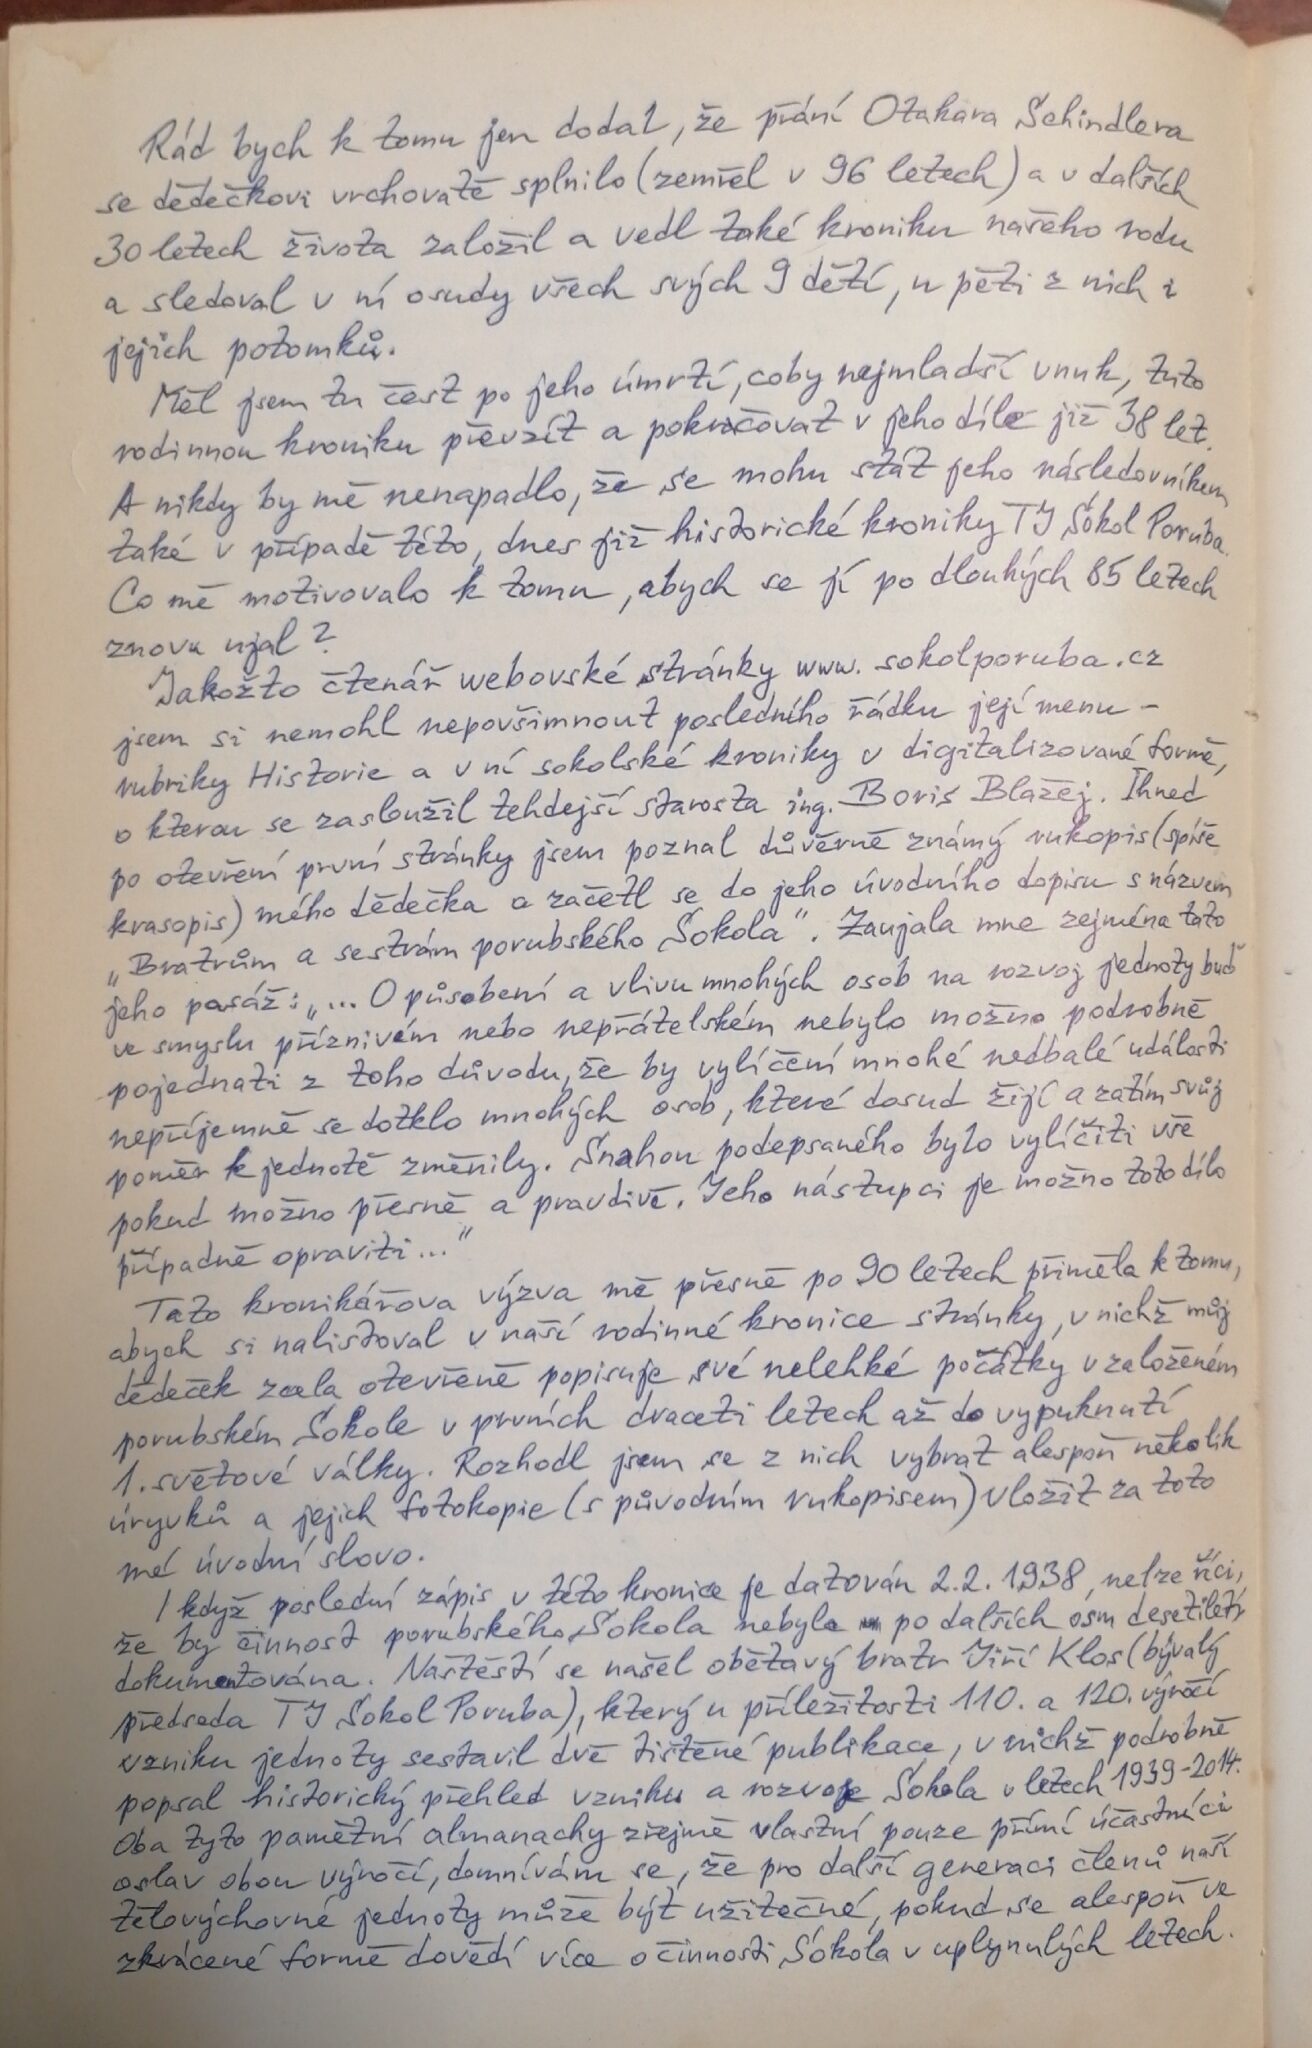 Rád bych k tomu jen dodat, že přání Otakara Schindlera
se dědečkovi vrchovatě splnilo (zemřel v 96 letech) a v dalších
30 letech života založil a vedl také kroniku našeho rodu
a sledoval v ní osudy všech svých 9 dětí, u pěti z nich i
jejich potomků.
Měl jsem tu čest po jeho úmrtí, coby nejmladší vnuk, tuto
rodinnou kroniku převzít a pokračovat v jeho díle již 38 let.
A nikdy by mě nenapadlo, že se mohu stát jeho následovníkem
také v případě této, dnes již historické kroniky TJ Sokol Poruba.
Co mě motivovalo k tomu, abych se jí po dlouhých 85 letech
znovu ujal?
Jakožto čtenář webovské stránky www.sokolporuba.cz
jsem si nemohl nepovšimnout posledního řádku její menu -
rubriky Historie a v ní sokolské kroniky v digitalizované formě,
o kterou se zasloužil tehdejší starosta ing. Boris Blažej. Ihned
po otevření první stránky jsem poznal důvěrně známý rukopis (spíše
krasopis) mého dědečka a začetl se do jeho úvodního dopisu s názvem
„Bratrům a sestrám porubského Sokola". Zaujala mne zejména tato
jeho pasáž: „... O působení a vlivu mnohých osob na rozvoj jednoty buď
ve smyslu příznivém nebo nepřátelském nebylo možno podrobně
pojednati z toho důvodu, že by vylíčení mnohé nedbalé události
nepříjemně se dotklo mnohých osob, které dosud žijí a zatím svůj
poměr k jednotě změnily. Snahou podepsaného bylo vylíčiti vše
pokud možno přesně a pravdivě. Jeho nástupci je možno toto dílo
případně opraviti..."
Tato kronikářova výzva mě přesně po 90 letech přiměla k tomu,
abych si nalistoval v naší rodinné kronice stránky, v nichž můj
dědeček zcela otevřeně popisuje své nelehké počátky v založeném
porubském Sokole v prvních dvaceti letech až do vypuknutí
1. světové války. Rozhodl jsem se z nich vybrat alespoň několik
úryvků a jejich fotokopie (s původním rukopisem) vložit za toto
mé úvodní slovo.
I když poslední zápis v této kronice je datován 2.2.1938, nelze říci,
že by činnost porubského Sokola nebyla po dalších osm desetiletí
dokumentována. Naštěstí se našel obětavý bratr Jiří Klos (bývalý
předseda TJ Sokol Poruba), který u příležitosti 110. a 120. výročí
vzniku jednoty sestavil dvě tištěné publikace, v nichž podrobně
popsal historický přehled vzniku a rozvoje Sokola v letech 1939-2014.
Oba tyto pamětní almanachy zřejmě vlastní pouze přímí účastníci
oslav obou výročí, domnívám se, že pro další generaci členů naší
tělovýchovné jednoty může být užitečné, pokud se alespoň ve
zkrácené formě dovědí více o činnosti Sokola v uplynulých letech.